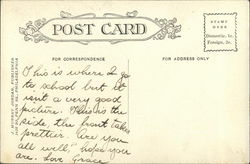 POST CARD
STAMP
HERE
Domestic, 1c.
Foreign, 2c.
FOR CORRESPONDENCE
FOR ADDRESS ONLY
J. MURRAY JORDAN, PUBLISHER
PHILADELPHIA
This is where I go
to school but it
isn't a very good
picture. This is the
side, the front takes
prettier. Are you
all well, hope you
are. Love Grace